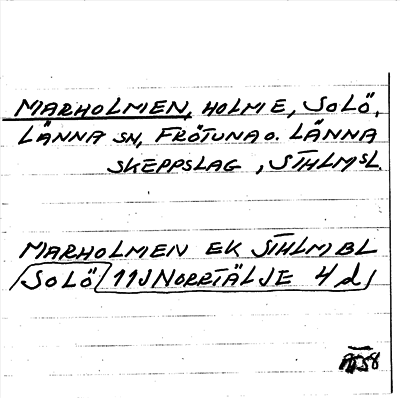 MARHOLMEN, HOLME, SOLÖ,
LÄNNA SN, FRÖTUNA O. LÄNNA
SKEPPSLAG, STHLMSL.
MARHOLMEN EK STHLM BL
SOLÖ 11J NORRTÄLJE 4 d